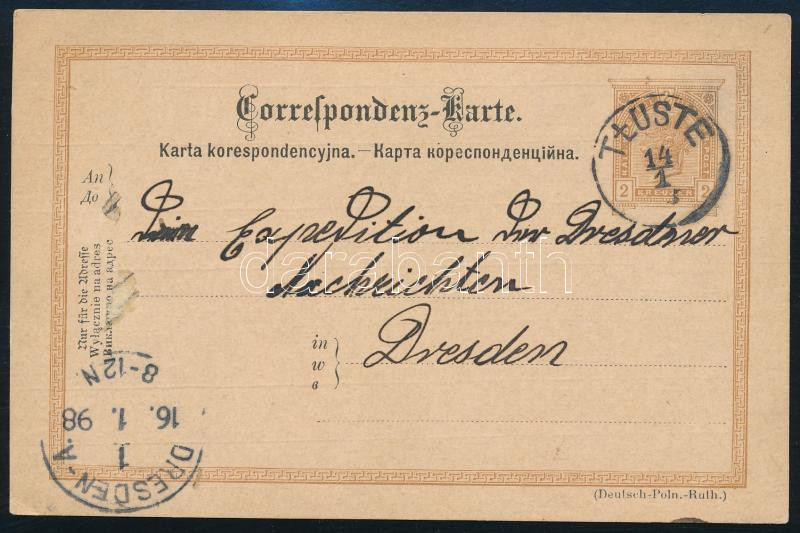 Correspondenz-Karte.
Karta korespondencyjna. — Карта кореспонденційна.
TŁUSTE
14
1
2 KREUZER 2
An
До
Expedition Der Dresdner
Nachrichten
in
w
в
Dresden
Nur für die Adresse
Wyłącznie na adres
Виключно на адрес
8-12N
16. 1. 98
1
DRESDEN-A.
(Deutsch-Poln.-Ruth.)
darabanth